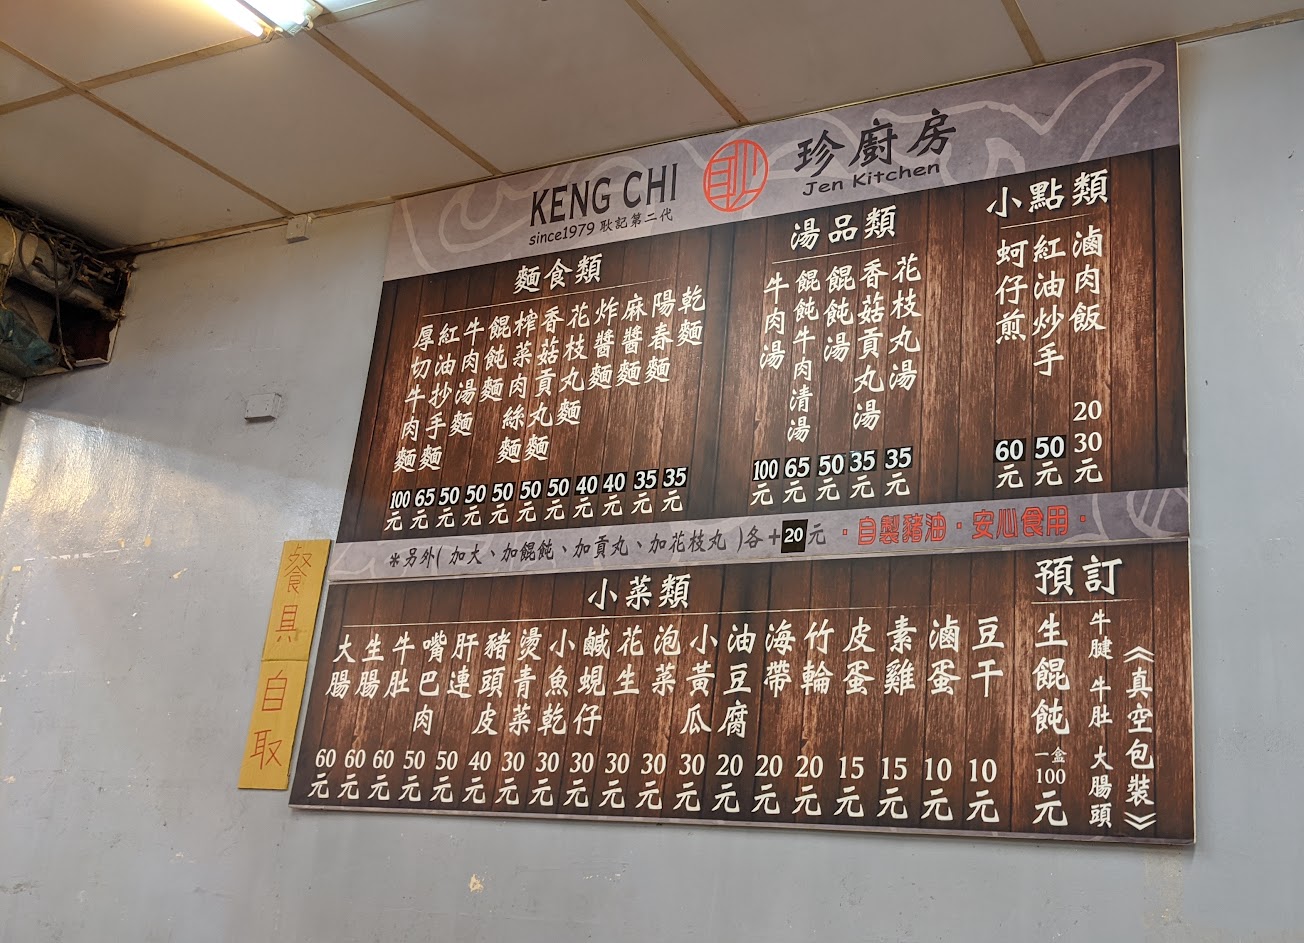 KENG CHI
since1979 耿記第二代
珍廚房
Jen Kitchen
麵食類
乾麵 35元
陽春麵 35元
麻醬麵 40元
炸醬麵 40元
花枝丸麵 50元
香菇貢丸麵 50元
榨菜肉絲麵 50元
餛飩麵 50元
牛肉湯麵 50元
紅油抄手麵 65元
厚切牛肉麵 100元
湯品類
花枝丸湯 35元
香菇貢丸湯 35元
餛飩湯 50元
餛飩牛肉清湯 65元
牛肉湯 100元
小點類
滷肉飯 20 30元
紅油炒手 50元
蚵仔煎 60元
*另外(加大、加餛飩、加貢丸、加花枝丸)各+20元
·自製豬油·安心食用·
小菜類
豆干 10元
滷蛋 10元
素雞 15元
皮蛋 15元
竹輪 20元
海帶 20元
油豆腐 20元
小黃瓜 30元
泡菜 30元
花生 30元
鹹蜆仔 30元
小魚乾 30元
燙青菜 30元
豬頭皮 40元
肝連 50元
嘴巴肉 50元
牛肚 60元
生腸 60元
大腸 60元
預訂
《真空包裝》
牛腱 牛肚 大腸頭
生餛飩 一盒100元
餐具
自取